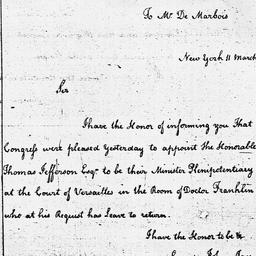 To Mr De Marbois
New York 11 March
Sir
I have the Honor of informing you That
Congress were pleased Yesterday to appoint the Honorable
Thomas Jefferson Esqr to be their Minister Plenipotentiary
at the Court of Versailles in the Room of Doctor Franklin
who at his Request has Leave to return.
I have the Honor to be &c